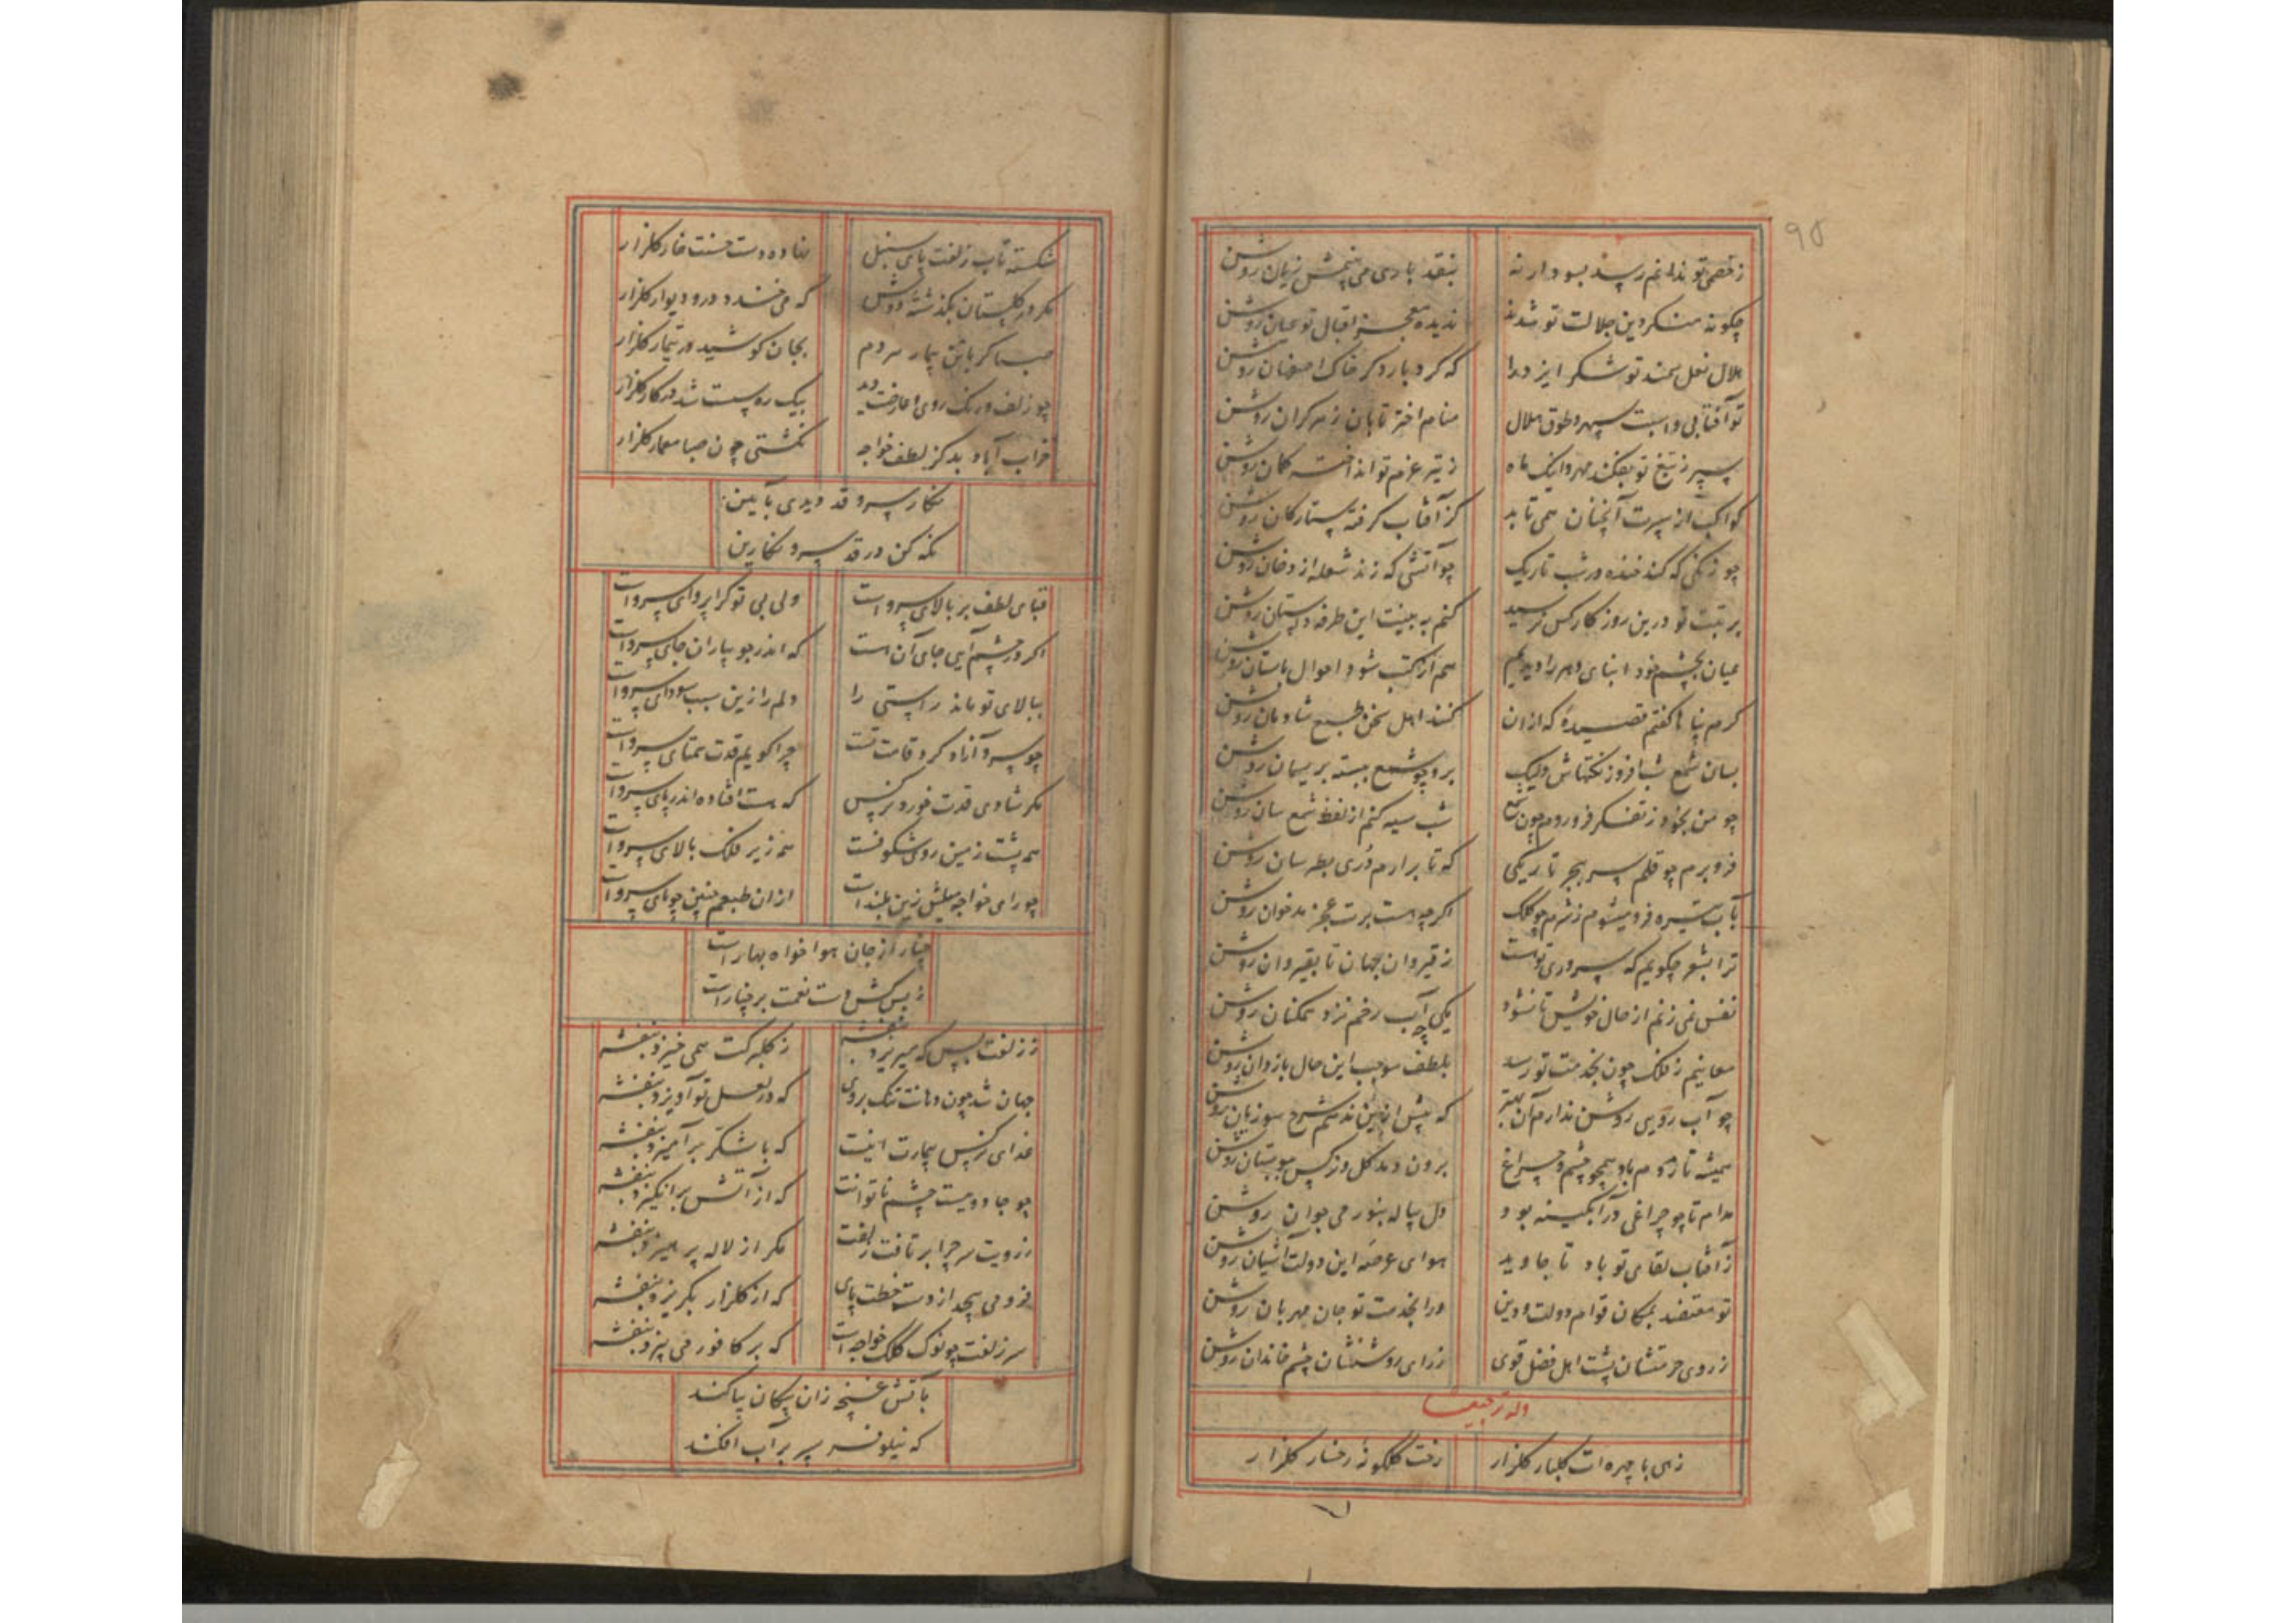 ۹۵
ز خصمی تو ندانم رسد بسود ارنه بنقد باری می بینمش زیان روشن
چکونه منکر دین جلالت تو شدند ندیده معجز اقبال تو عیان روشن
هلال نعل سمند تو شکر ایزد را که کرد بار دکر خاک اصفهان روشن
تو آفتابی و اسبت سپهر و طوق هلال ستام اختر تابان ز هر کران روشن
سپر ز تیغ تو بفکند مهر و اینک ماه ز تیر عزم تو انداخته کمان روشن
کواکب از سپرت آنچنان همی تابد کز آفتاب کرفته ستارکان روشن
چو زنکئی که کند خنده در شب تاریک چو آتشی که زند شعله از دخان روشن
برتبت تو درین روزکار کس نرسید کنم به بینت این طرفه داستان روشن
عیان بچشم خود ابنای دهر را دیدیم هم از کتب شود احوال باستان روشن
کرم پناها کفتم قصیدهٔ که از ان کنند اهل سخن طبع شادمان روشن
بسان شمع شب افروز نکتهاش ولیک برو چو شمع ببسته بریسمان روشن
چو من بخود ز تفکر فرو روم چون شمع شب سیه کنم از لفظ شمع سان روشن
فرو برم چو قلم سر ببحر تاریکی که تا برارم دری بطره سان روشن
بآب تیره فرو میشوم ز شرم چو کلک اکر چه هست برت عجز مدح خوان روشن
ترا بشعر چکویم که سروری توست ز قیروان بجهان تا بقیروان روشن
نفس نمی زنم از حال خویش تا نشود یکی چه آب رخم نزد همکنان روشن
معانیم ز فلک چون بخدمت تو رسد بلطف موجب این حال بازدان روشن
چو آب رویی روشن ندارم آن بهتر که پیش ازین ندهم شرح سوزیان روشن
همیشه تا دهدم باد همچو چشم و چراغ برون دمد کل و نرکس ببوستان روشن
مدام تا چو چراغی در آبکینه بود دل پیاله بنور می جوان روشن
ز آفتاب لقای تو باد تا جاوید هوای عرصه این دولت آشیان روشن
تو معتضد بمکان قوام دولت و دین ورا بخدمت تو جان مهربان روشن
ز روی حرمتشان پشت اهل فضل قوی ز رای روشنشان چشم خاندان روشن
وله ترجیعا
زهی با چهره ات کلنار کلزار رخت کلکونهٔ رخسار کلزار
شکسته تاب زلفت پای سنبل نهاده دست حسنت خار کلزار
مکر در کلستان بکذشتهٔ دوش که می خندد در و دیوار کلزار
صبا کر باتن بیمار هر دم بجان کوشید در تیمار کلزار
چو زلف و رنک روی و عارضت دید بیک ره سست شد در کار کلزار
خراب آباد بد کز لطف خواجه نکشتی چون صبا معمار کلزار
نکار سرو قد دیدی بآیین
نکه کن در قد سرو نکارین
قبای لطف بر بالای سروست ولی بی تو کرا پروای سروست
اکر در چشم آیی جای آن هست که اندر جویباران جای سروست
ببالای تو ماند راستی را دلم را زین سبب سودای سروست
چو سرو آزاد کرد قامت تست چرا کویم قدت همتای سروست
مکر شادی قدت خورد نرکس که مست افتاده اندر پای سروست
همه پشت زمین روی شکوفست همه زیر فلک بالای سروست
چو رای خواجه میلش زین بلندست از ان طبعم چنین جویای سروست
چنار از جان هوا خواه بهارست
ز بس کش دست نعمت بر چنارست
ز زلفت بس که می ریزد بنفشه ز کلبرکت همی خیزد بنفشه
جهان شد چون دهانت تنک بروی که در لعل تو آویزد بنفشه
غذای نرکس بیمارت اینست که با شکر بر آمیزد بنفشه
چو جادوییست چشم ناتوانت که از آتش برانکیزد بنفشه
ز رویت سر چرا بر تافت زلفت مکر از لاله پرهیزد بنفشه
فرو می پیچد از دست خطت پای که از کلزار بکریزد بنفشه
سر زلفت چو نوک کلک خواجه است که بر کافور می بیزد بنفشه
بآتش غنچه زان پیکان پاکند
که نیلوفر سپر بر آب افکند